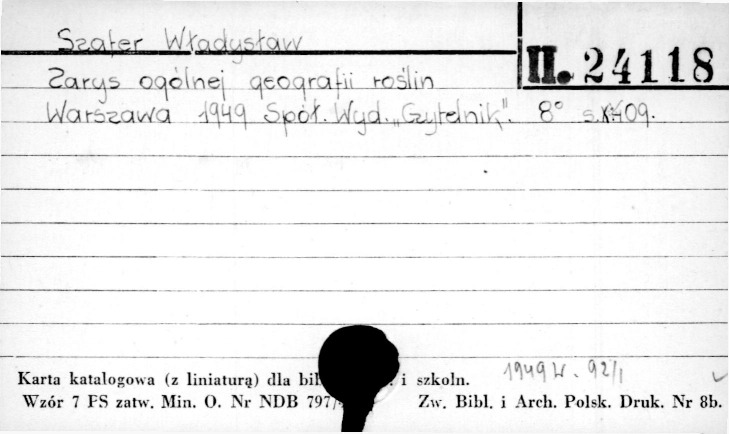 Szafer Władysław
II. 24118
Zarys ogólnej geografii roślin
Warszawa 1949 Spół. Wyd. „Czytelnik". 8° s. 409.
1949 92/1
Karta katalogowa (z liniaturą) dla i szkoln.
Wzór 7 FS zatw. Min. O. Nr NDB 797/ Zw. Bibl. i Arch. Polsk. Druk. Nr 8b.